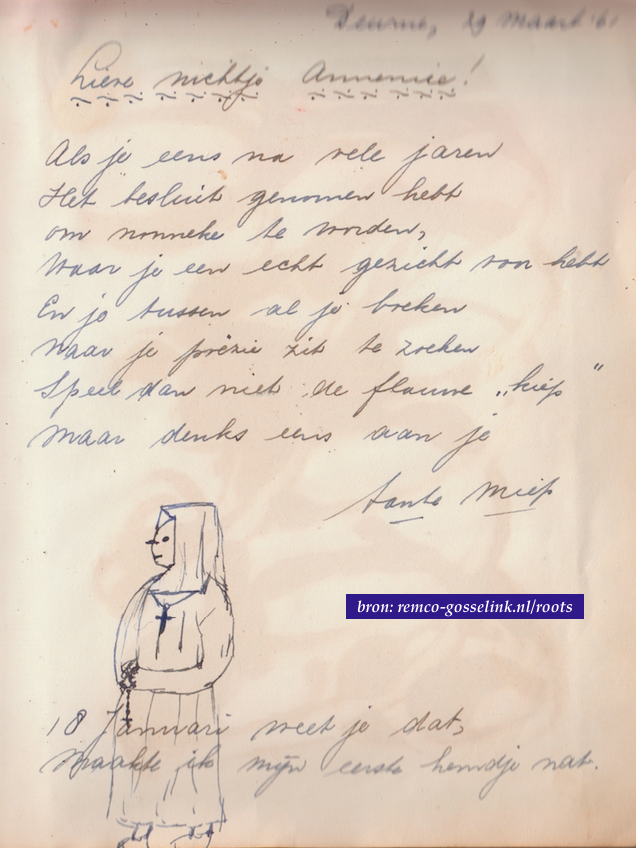 Deurne, 29 Maart '61
Lieve nichtje Annemie!
Als je eens na vele jaren
Het besluit genomen hebt
om nonneke te worden,
Waar je een echt gezicht voor hebt
En je tussen al je boeken
Naar je poëzie zit te zoeken
Speel dan niet de flauwe „kiep"
Maar denks eens aan je
tante Miep
bron: remco-gosselink.nl/roots
18 Januari weet je dat,
Maakte ik mijn eerste hemdje nat.